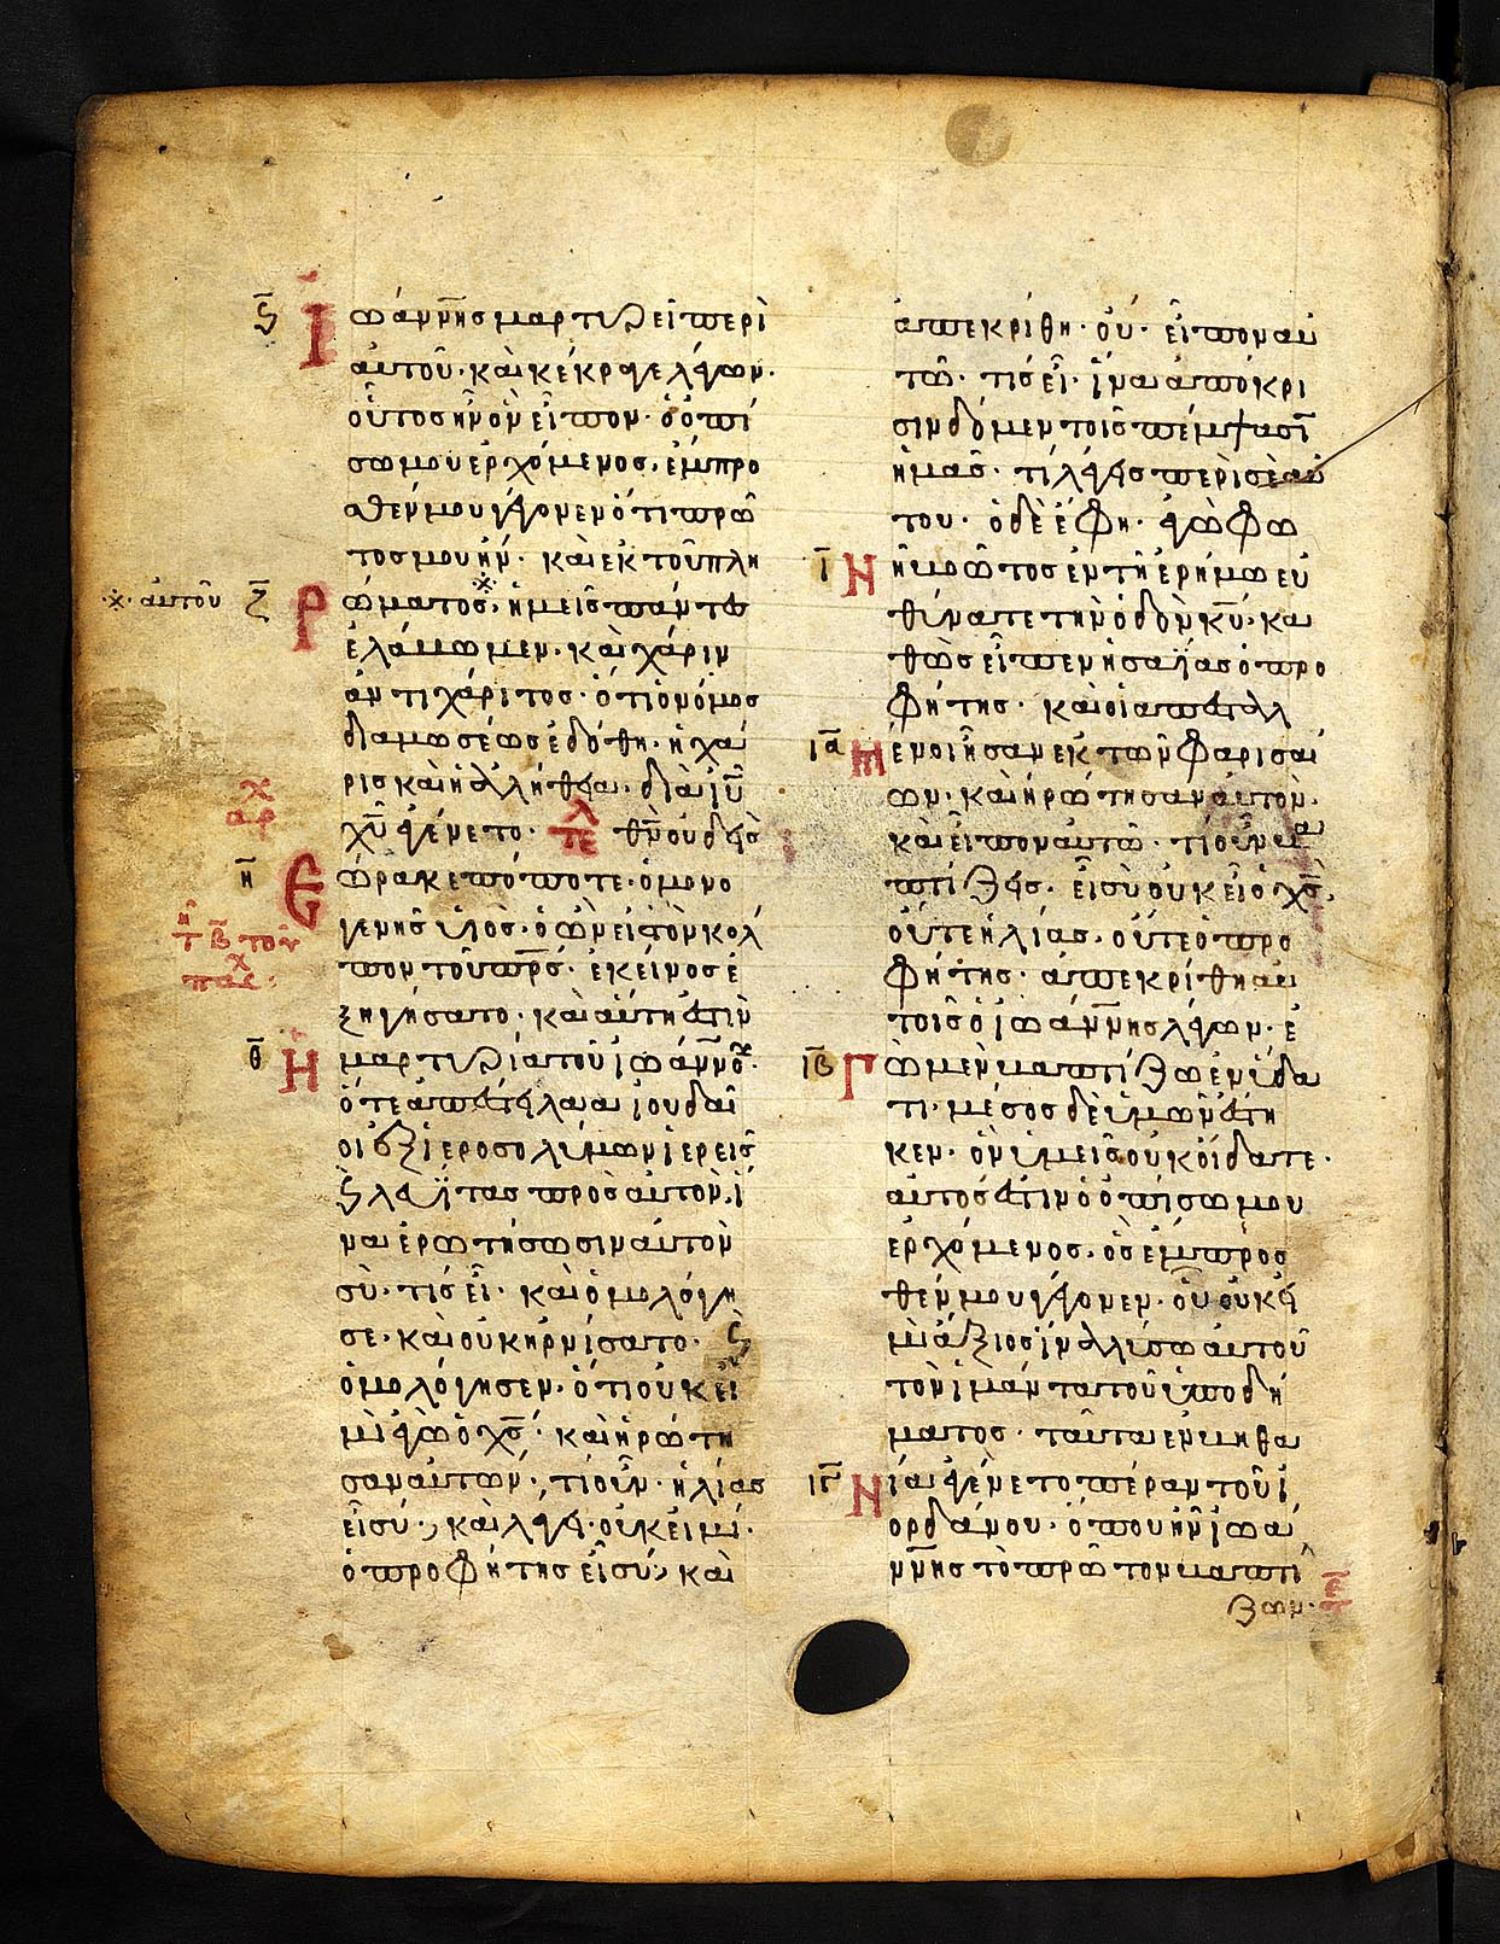 ϛ Ἰωάννης μαρτυρεῖ περὶ
αὐτοῦ· καὶ κέκραγε λέγων·
οὗτος ἦν ὃν εἶπον· ὁ ὀπί
σω μου ἐρχόμενος, ἔμπρο
σθέν μου γέγονεν ὅτι πρῶ
τός μου ἦν· καὶ ἐκ τοῦ πλη
※ αὐτοῦ ζ Ρώματος※, ἡμεῖς πάντες
ἐλάβωμεν· καὶ χάριν
ἀντὶ χάριτος· ὅτι ὁ νόμος
διὰ μωσέως ἐδόθη· ἡ χά
ρις καὶ ἡ ἀλήθεια· διὰ ἰυ
αρχ χυ ἐγένετο· τελ θν οὐδεὶς
η Εώρακε πόποτε· ὁ μονο
γενὴς υἱὸς· ὁ ὢν εἰς τὸν κόλ
τ β τοῦ
πον τοῦ πρς· ἐκεῖνος ἐ
πασχ
ξηγήσατο· καὶ αὕτη ἐστὶν
θ Η μαρτυρία τοῦ ἰωάννου·
ὅτε ἀπέστειλαν οἱ ἰουδαῖ
οι ἐξ ἱεροσολύμων ἱερεῖς
ϗ λευΐτας πρὸς αὐτὸν, ἵ
να ἐρωτήσωσιν αὐτὸν
σὺ· τίς εἶ· καὶ ὁμολόγη
σε· καὶ οὐκ ἠρνίσατο· ϗ
ὁμολόγησεν· ὅτι οὐκ εἰ
μὶ ἐγὼ ὁ χς· καὶ ἠρώτη
σαν αὐτων·, τί οὖν· ἠλίας
εἶ σύ·, καὶ λέγει· οὐκ εἰμί·
ὁ προφήτης εἶ σύ·, καὶ
ἀπεκρίθη· οὔ· εἶπον αὐ
τῶ· τίς εἶ· ἵνα ἀπόκρι
σιν δῶμεν τοῖς πέμψασι
ἡμᾶς· τί λέγεις περὶ σεαυ
του· ὁ δὲ ἔφη· ἐγὼ φω
ι Νὴ βοῶντος ἐν τῆ ἐρήμω εὐ
θύνατε τὴν ὁδὸν κυ· κα
θὼς εἶπεν ἡσαΐας ὁ προ
φήτης· καὶ οἱ ἀπεσταλ
ια Μένοι ἦσαν ἐκ τῶν φαρισαί
ων· καὶ ἠρώτησαν αὐτὸν·
καὶ εἶπον αὐτῶ· τί οὖν βα
πτίζεις· εἰ σὺ οὐκ εἶ ὁ χς,
οὔτε ἠλίας· οὔτε ὁ προ
φήτης· ἀπεκρίθη αὐ
τοῖς ὁ ἰωάννης λέγων· ἐ
ιβ Γὼ μὲν βαπτίζω ἐν ὕδα
τι· μέσος δὲ ὑμῶν ἔστη
κεν· ὃν ὑμεῖς οὐκ οἴδατε·
αὐτός ἐστιν ὁ ὀπίσω μου
ἐρχόμενος· ὃς ἔμπροσ
θέν μου γέγονεν· οὗ οὐκ εἰ
μὶ ἄξιος ἵνα λύσω αὐτοῦ
τὸν ἱμάντα τοῦ ὑποδή
ματος· ταῦτα ἐν βηθα
ιγ Νία ἐγένετο πέραν τοῦ ἰ
ορδάνου· ὅπου ἦν ἰωά
ννης τὸ πρῶτον βαπτί
ζων·